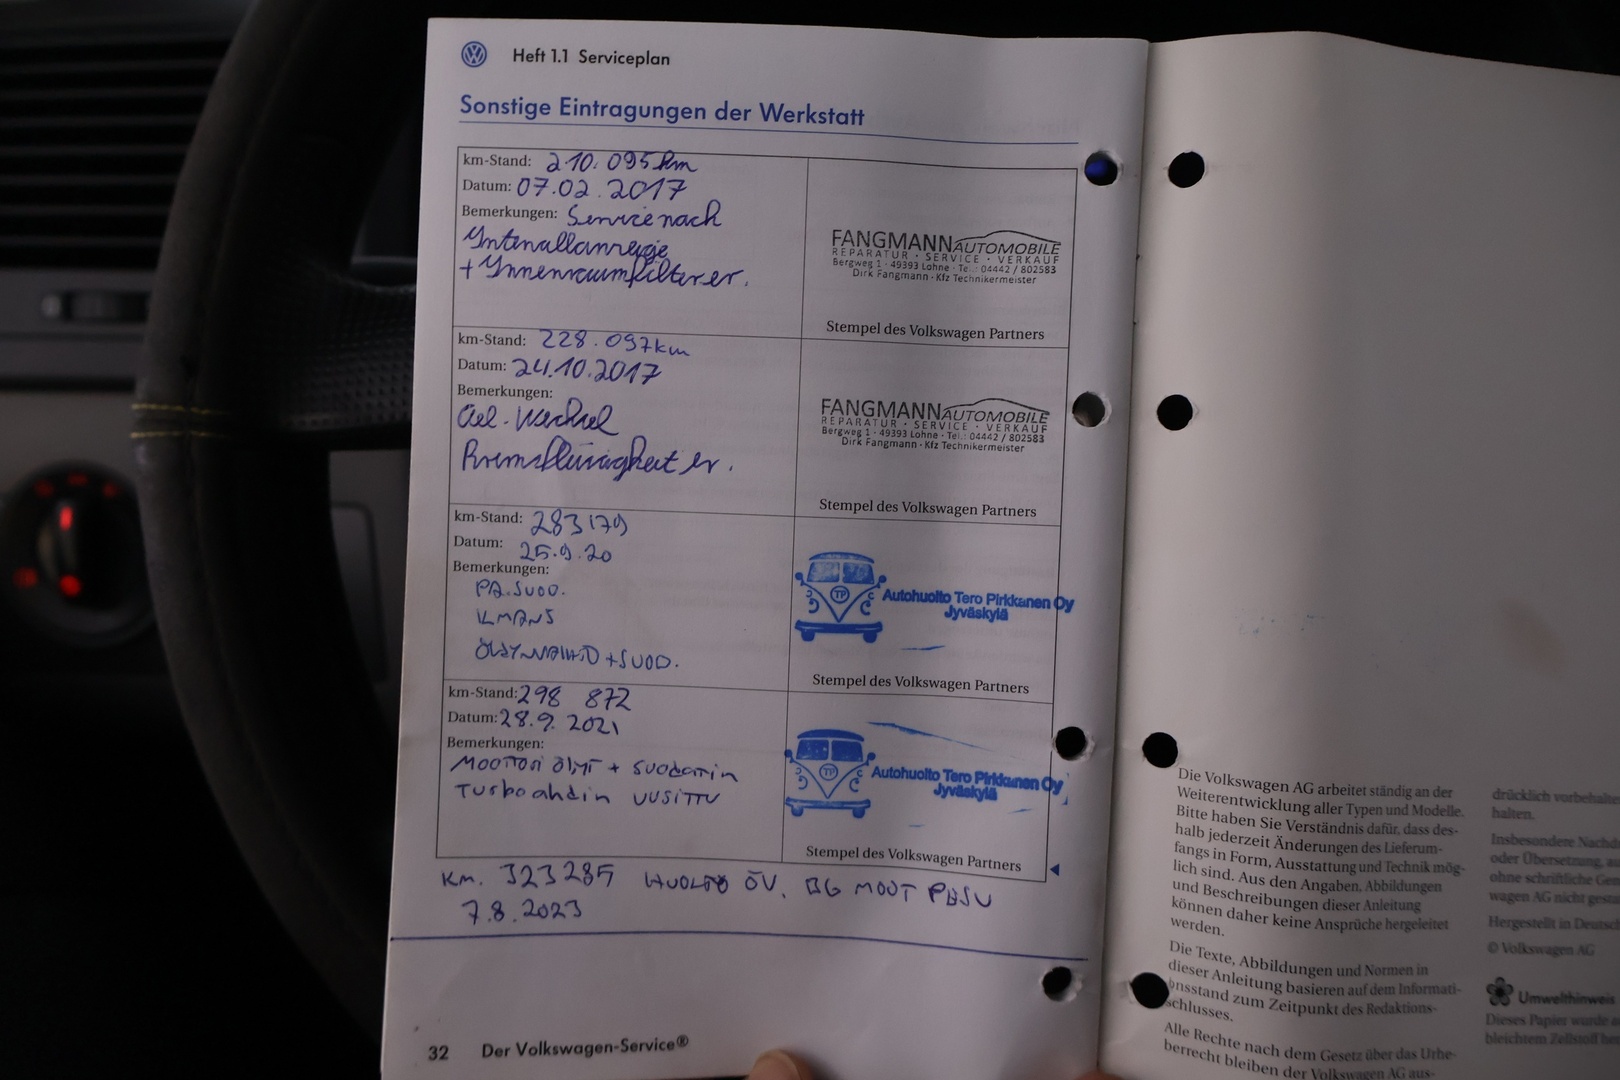 Heft 1.1 Serviceplan
Sonstige Eintragungen der Werkstatt
km-Stand: 210.095 km
Datum: 07.02.2017
Bemerkungen: Service nach
Intervallanzeige
+ Innenraumfilter er.
FANGMANN AUTOMOBILE
REPARATUR · SERVICE · VERKAUF
Bergweg 1 · 49393 Lohne · Tel.: 04442 / 802583
Dirk Fangmann · Kfz Technikermeister
Stempel des Volkswagen Partners
km-Stand: 228.097 km
Datum: 24.10.2017
Bemerkungen:
Oel-Wechsel
Bremsflüssigkeit er.
FANGMANN AUTOMOBILE
REPARATUR · SERVICE · VERKAUF
Bergweg 1 · 49393 Lohne · Tel.: 04442 / 802583
Dirk Fangmann · Kfz Technikermeister
Stempel des Volkswagen Partners
km-Stand: 283179
Datum: 25.9.20
Bemerkungen:
PA.SUOD.
ILMANS
ÖLJYNVAIHTO + SUOD.
TP
Autohuolto Tero Pirkkanen Oy
Jyväskylä
Stempel des Volkswagen Partners
km-Stand: 298 872
Datum: 28.9.2021
Bemerkungen:
MOOTTORI ÖLJYT + SUODATTIN
Turboahdin UUSITTU
TP
Autohuolto Tero Pirkkanen Oy
Jyväskylä
Stempel des Volkswagen Partners
KM. 323285 HUOLTO ÖV, BG MOOT PESU
7.8.2023
32 Der Volkswagen-Service®
Die Volkswagen AG arbeitet ständig an der
Weiterentwicklung aller Typen und Modelle.
Bitte haben Sie Verständnis dafür, dass des-
halb jederzeit Änderungen des Lieferum-
fangs in Form, Ausstattung und Technik mög-
lich sind. Aus den Angaben, Abbildungen
und Beschreibungen dieser Anleitung
können daher keine Ansprüche hergeleitet
werden.
Die Texte, Abbildungen und Normen in
dieser Anleitung basieren auf dem Informati-
onsstand zum Zeitpunkt des Redaktions-
schlusses.
Alle Rechte nach dem Gesetz über das Urhe-
berrecht bleiben der Volkswagen AG aus-
drücklich vorbehalte
halten.
Insbesondere Nachd
oder Übersetzung, au
ohne schriftliche Gen
wagen AG nicht gesta
Hergestellt in Deutsch
© Volkswagen AG
Umwelthinweis
Dieses Papier wurde a
bleichtem Zellstoff he